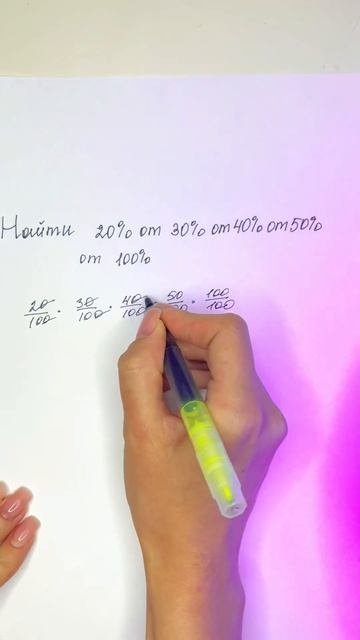 Найти 20% от 30% от 40% от 50%
от 100%
20/100 · 30/100 · 40/100 · 50/100 · 100/100